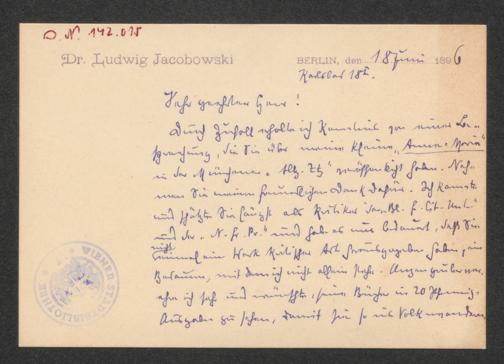 O. N. 142.035
Dr. Ludwig Jacobowski
BERLIN, den 18 Juni 1896
Karlsbad 18I.
Sehr geehrter Herr!
Durch Zufall erhalte ich Kenntnis von einer Be-
sprechung, die Sie über meine kleine „Anne-Marie“
in der Münchener „Allg. Ztg“ veröffentlicht haben. Neh-
men Sie meinen freundlichen Dank dafür. Ich kannte
und schätzte Sie längst als Kritiker
und der „N. Fr. Pr.“ und habe es nur bedauert, daß Sie
nicht
einmal ein Werk kritischer Art herausgegeben haben, ein
Bedauern, mit dem ich nicht allein stehe.
ehe ich sah und wünschte, seine Bücher in 20 Pfennig-
Ausgaben zu sehen, damit sie so ins Volk
WIENER STADTBIBLIOTHEK